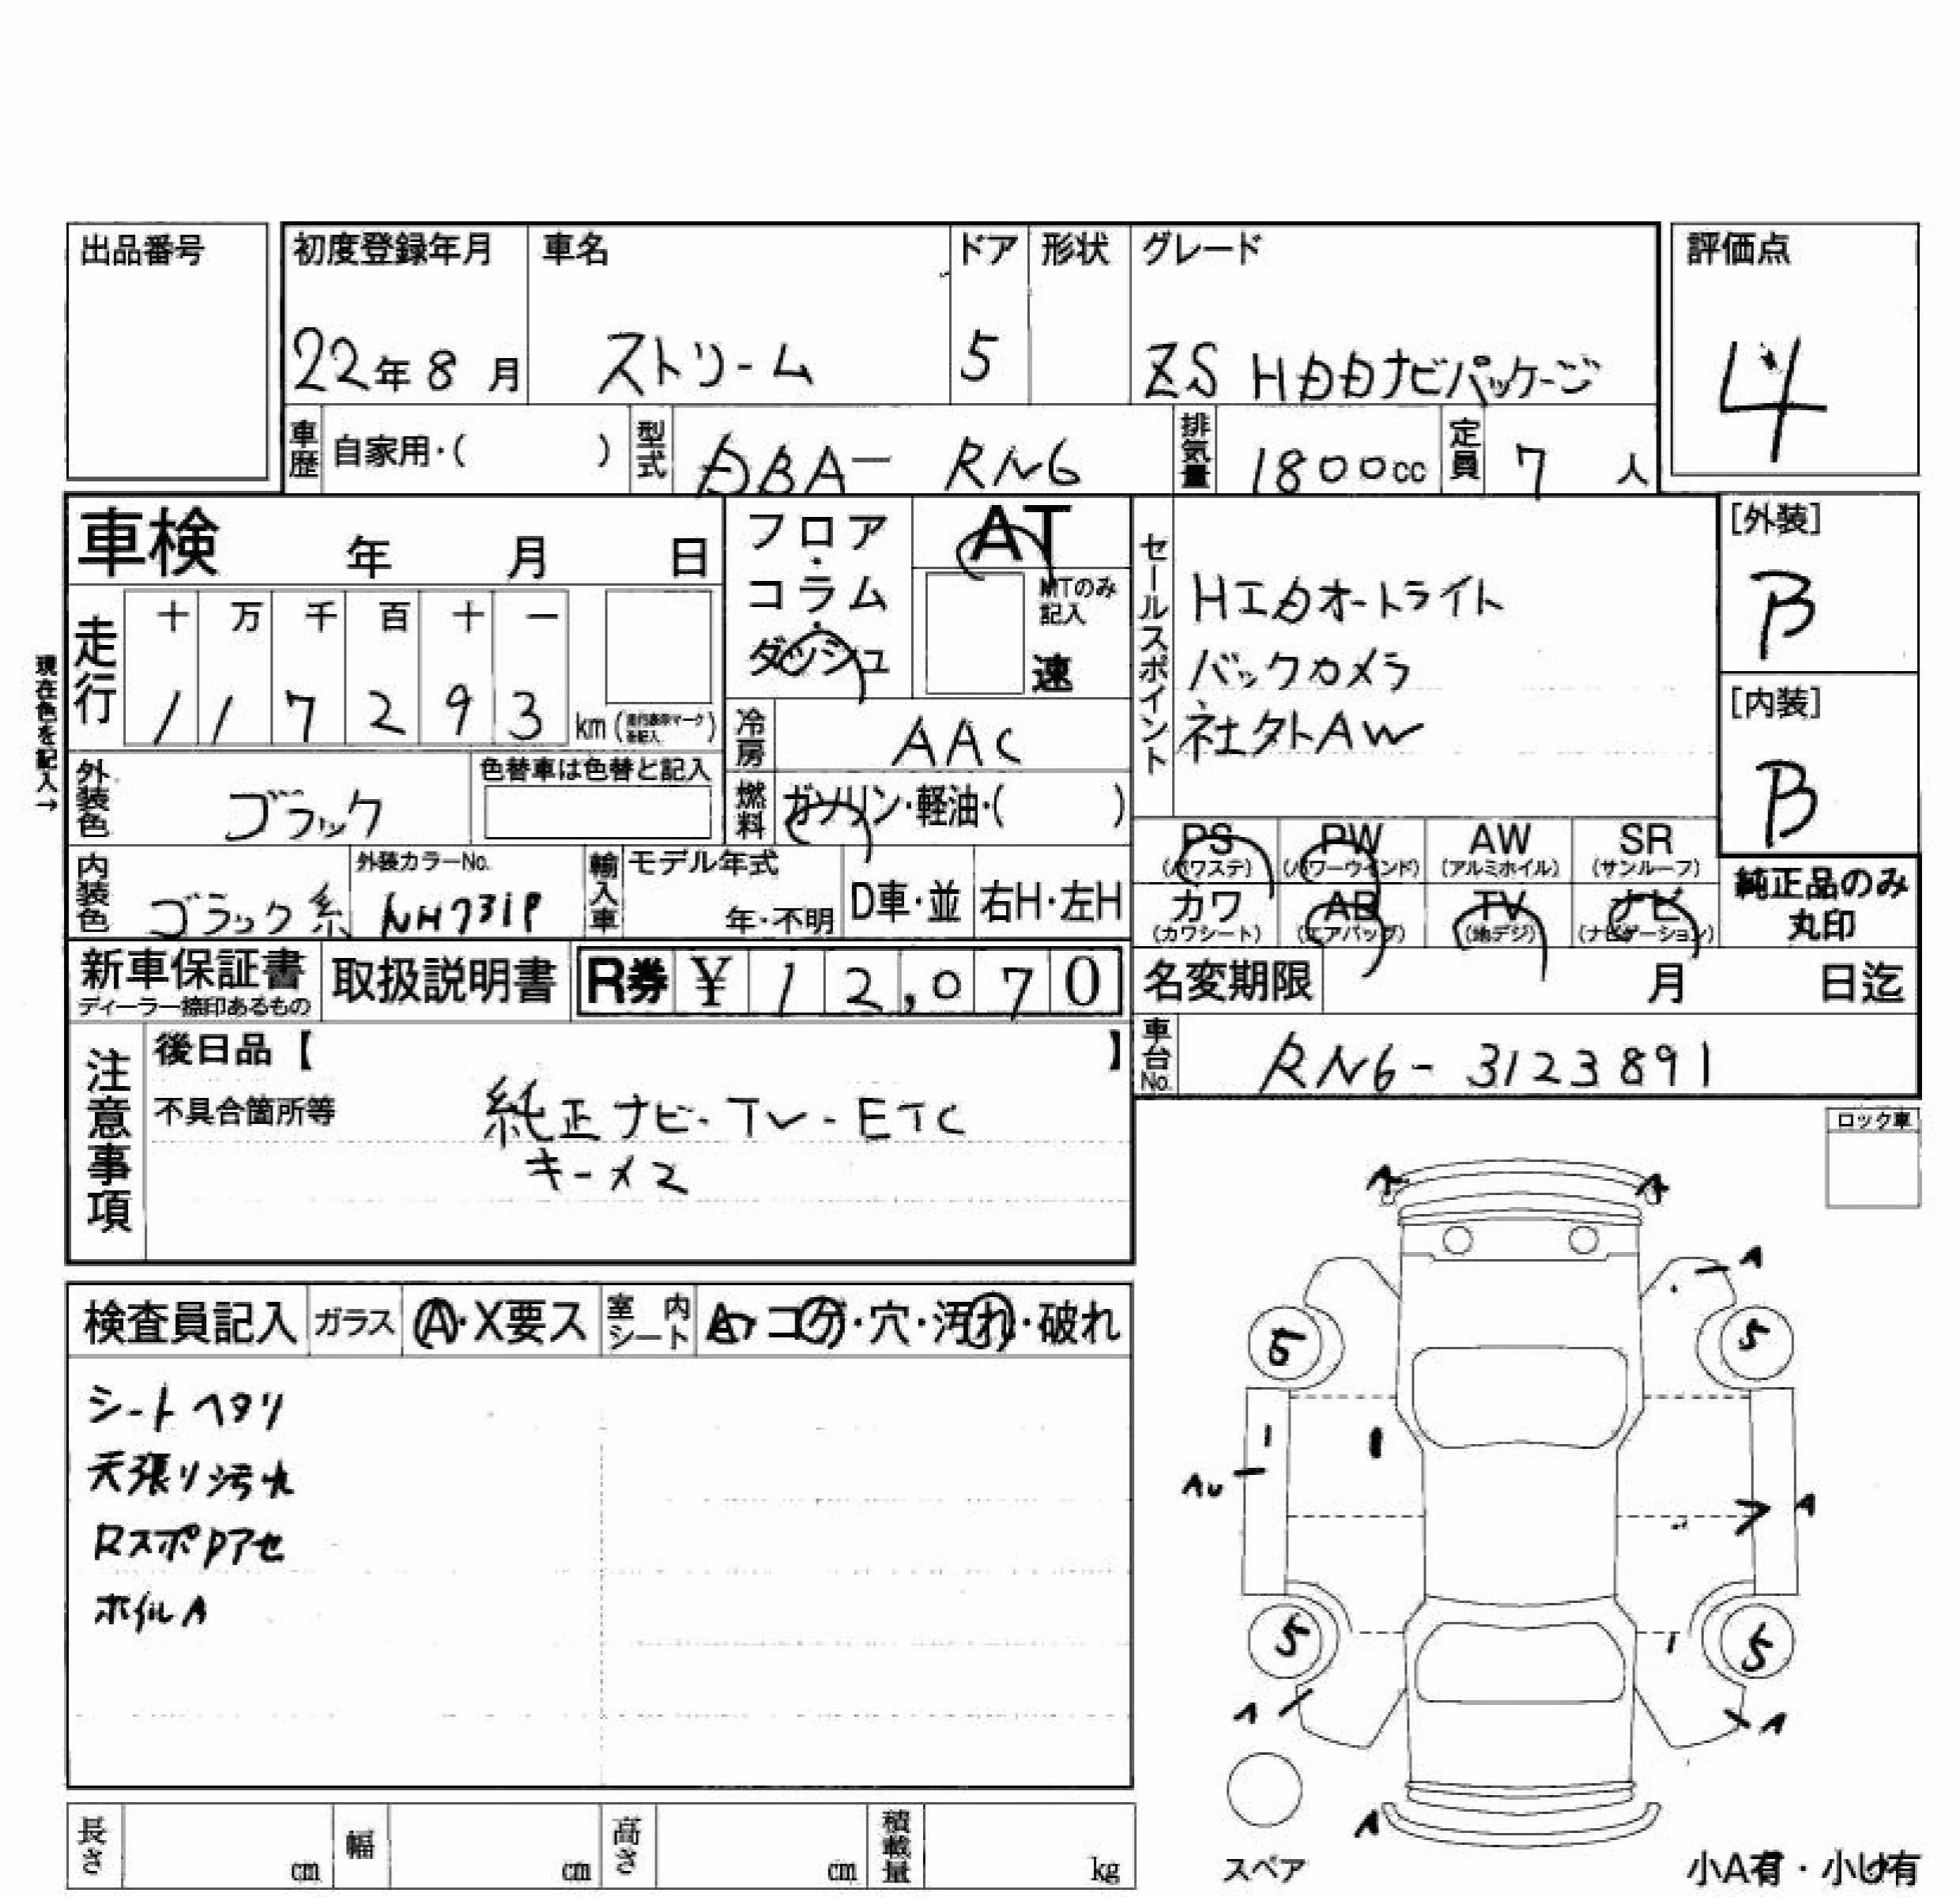 出品番号
初度登録年月 車名 ドア 形状 グレード
評価点
22年8月 ストリーム 5 ZS HDDナビパッケージ
4
車歴 自家用・( ) 型式 DBA- RN6 排気量 1800cc 定員 7人
車検 年 月 日
フロア・コラム・ダッシュ
AT
MTのみ記入
速
セールスポイント
HIDオートライト
バックカメラ
社外AW
[外装]
B
[内装]
B
現在色を記入→
走行 十 万 千 百 十 一
1 1 7 2 9 3 km
冷房 AAC
外装色 ブラック 色替車は色替と記入
燃料 ガソリン・軽油・( )
PS (パワステ) PW (パワーウインド) AW (アルミホイル) SR (サンルーフ)
カワ (カワシート) AB (エアバッグ) TV (地デジ) ナビ (ナビゲーション)
純正品のみ
丸印
内装色 ブラック系 外装カラーNo. NH731P 輸入車 モデル年式 年・不明 D車・並 右H・左H
新車保証書 ディーラー捺印あるもの 取扱説明書 R券 ¥ 12,070
名変期限 月 日迄
車台No. RN6-3123891
注意事項
後日品【 】
不具合箇所等 純正ナビ-TV-ETC
キーメ2
ロック車
検査員記入 ガラス A・X要ス 室内シート A・コゲ・穴・汚れ・破れ
シートヘタリ
天張り汚れ
RスポPアセ
ホイルA
A A
A
5 5
AU A
5 5
A A
A
スペア
小A有・小U有
長さ cm 幅 cm 高さ cm 積載量 kg